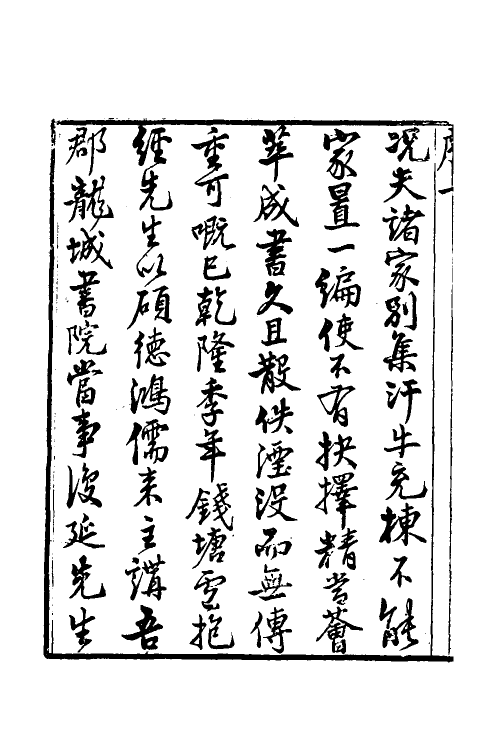 序一
況夫諸家别集汗牛充棟不能
家置一編使不有抉擇精當薈
萃成書久且散佚湮没而無傳
重可嘅已乾隆季年錢塘盧抱
經先生以碩德鴻儒来主講吾
郡龍城書院當事復延先生